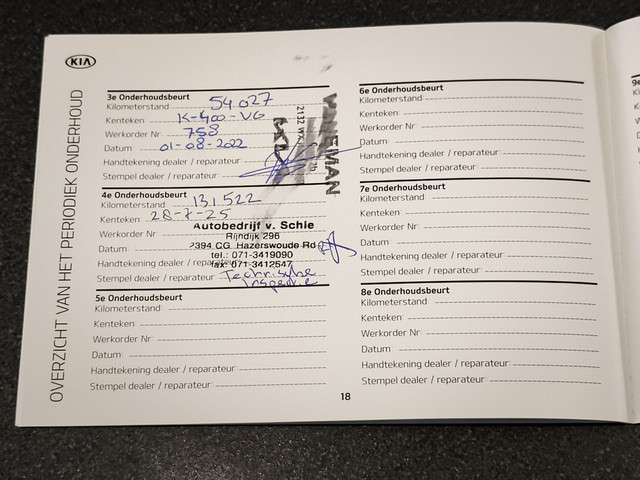 KIA
OVERZICHT VAN HET PERIODIEK ONDERHOUD
3e Onderhoudsbeurt
Kilometerstand 54027
Kenteken K-400-VG
Werkorder Nr 758
Datum 01-08-2022
Handtekening dealer / reparateur
Stempel dealer / reparateur
2132 WX
4e Onderhoudsbeurt
Kilometerstand 131,522
Kenteken 28-7-25
Werkorder Nr
Datum
Handtekening dealer / reparateur
Stempel dealer / reparateur Technische
Inspectie
Autobedrijf v. Schie
Rijndijk 296
2394 CG Hazerswoude Rd
tel.: 071-3419090
fax: 071-3412547
5e Onderhoudsbeurt
Kilometerstand
Kenteken
Werkorder Nr
Datum
Handtekening dealer / reparateur
Stempel dealer / reparateur
18
6e Onderhoudsbeurt
Kilometerstand
Kenteken
Werkorder Nr
Datum
Handtekening dealer / reparateur
Stempel dealer / reparateur
7e Onderhoudsbeurt
Kilometerstand
Kenteken
Werkorder Nr
Datum
Handtekening dealer / reparateur
Stempel dealer / reparateur
8e Onderhoudsbeurt
Kilometerstand
Kenteken
Werkorder Nr
Datum
Handtekening dealer / reparateur
Stempel dealer / reparateur
9e